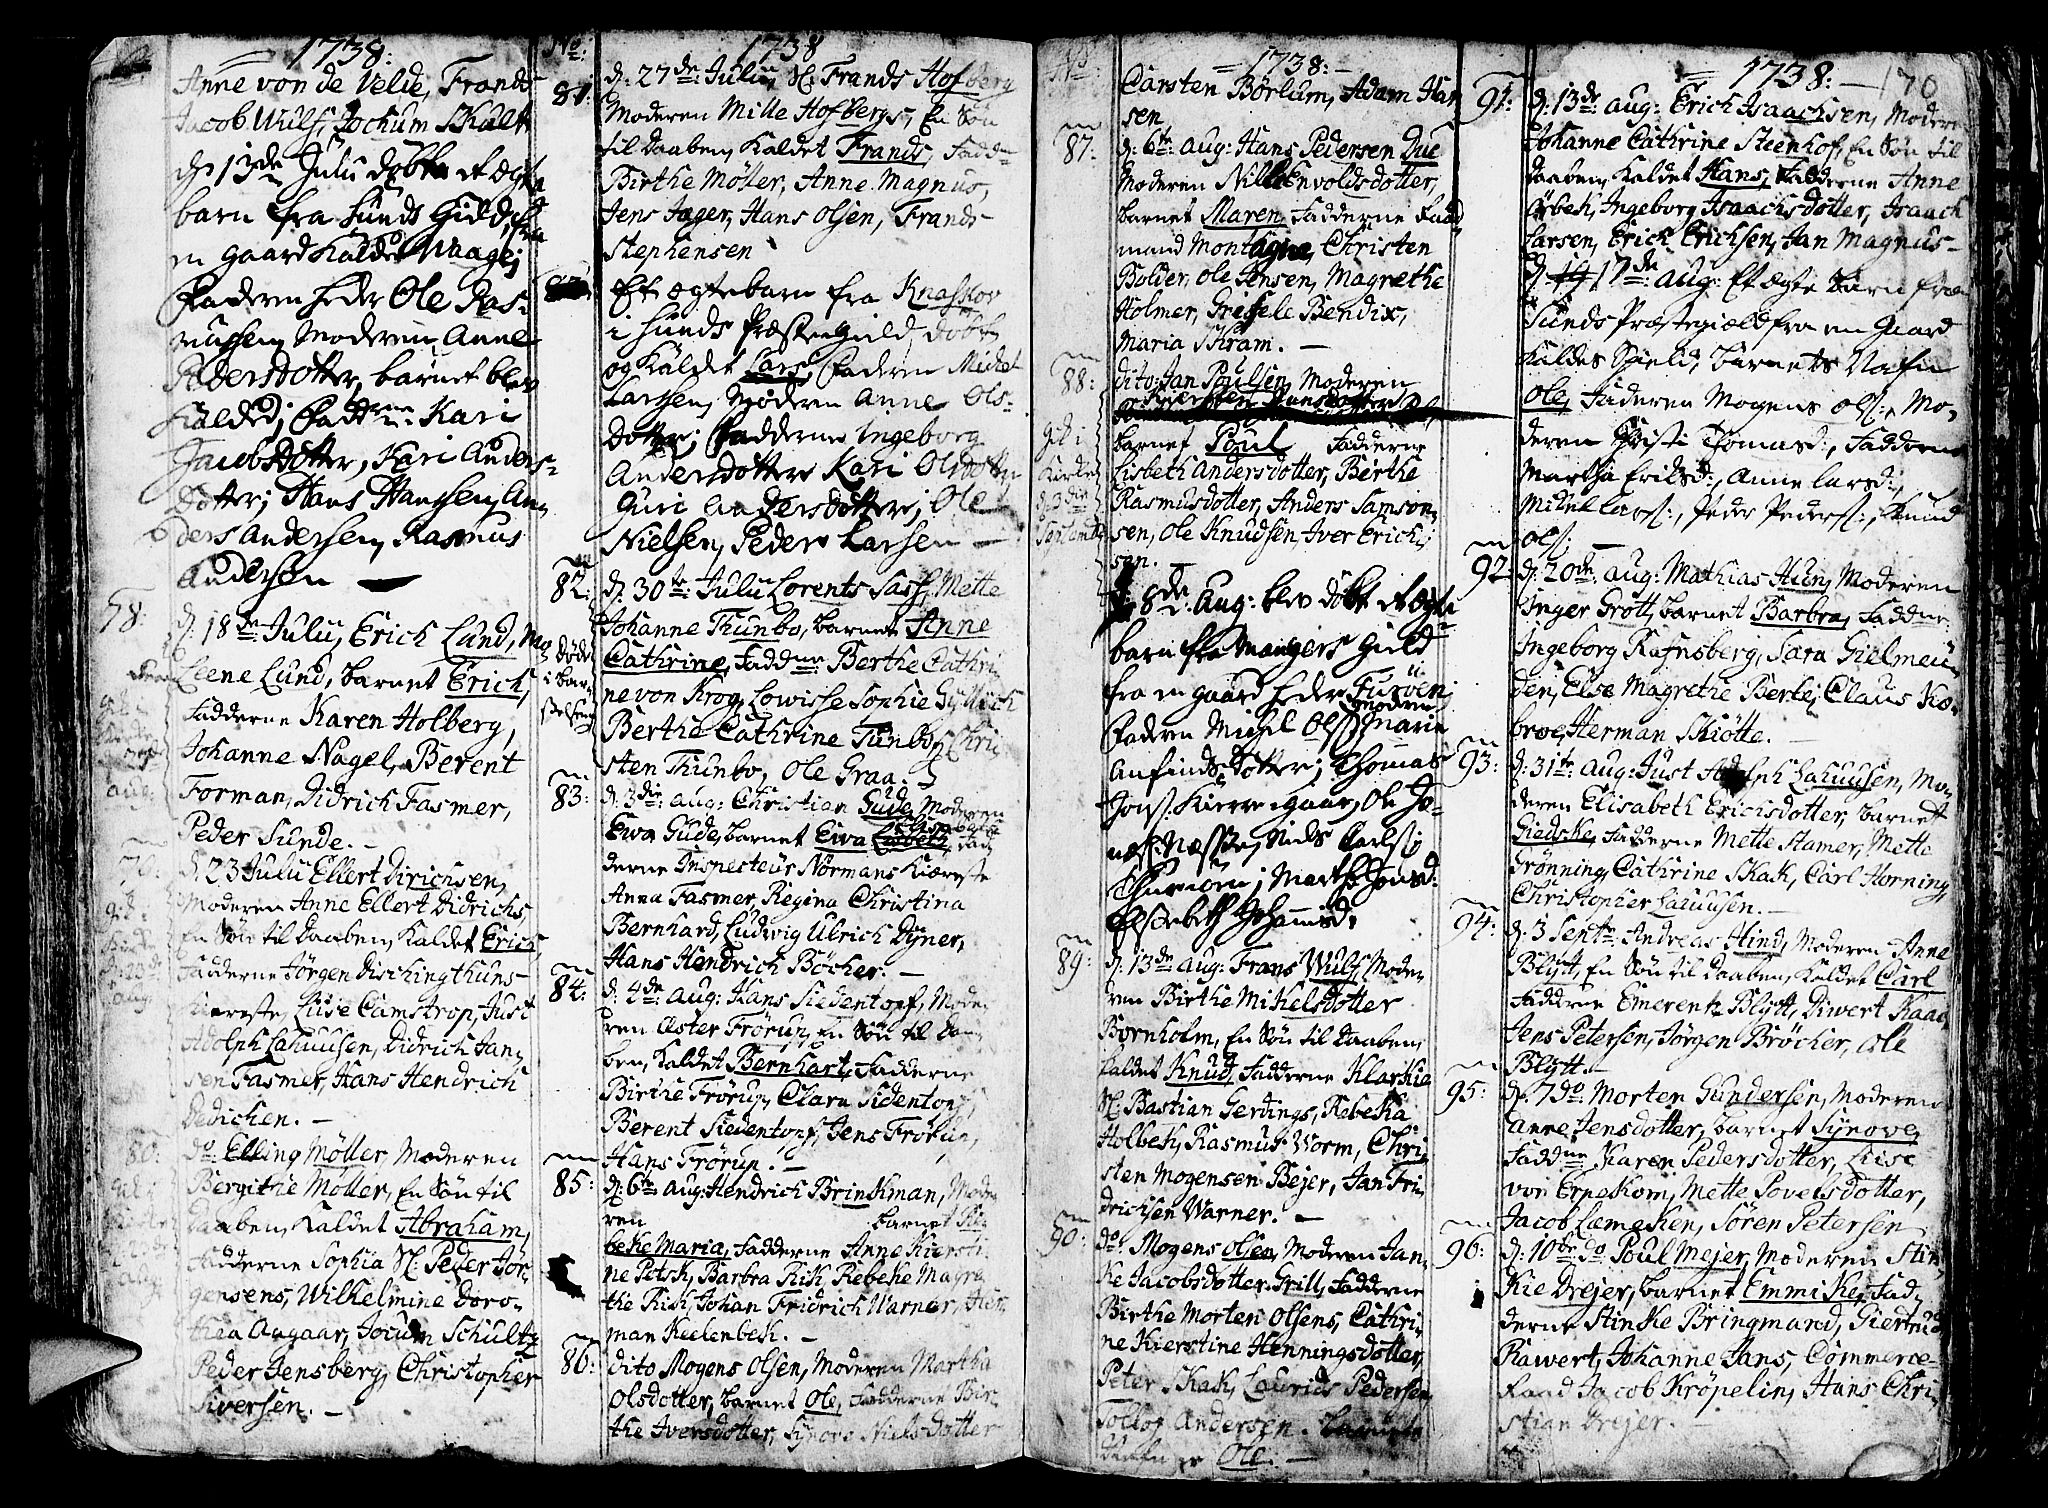 1738:
Anne von de Velde, Frands
Jacob Wulf, Jochum Skult
d. 13de Julii døbt et Ægte
barn fra Sunds Gield, fra
en gaard kaldet Waage;
Faderen heder Ole Ras-
mussen, Moderen Anne
Pedersdotter, barnet blev
kaldet; Kari
Jacobsdotter, Kari Anders-
dotter; Hans Hanssen, An-
ders Andersen, Rasmus
Andersen —
78:
d: 18de Julii, Erich Lund, Mo-
Leene Lund, barnet Erich,
Fadderne Karen Holberg,
Johanne Nagel, Berent
Forman, Didrich Fasmer,
Peder Sunde. —
aug:
79:
d. 23 Julii Ellert Dirichsen,
Moderen Anne Ellert Didrichs
En Søn til Daaben, kaldet Erich,
Fadderne Jørgen Dischingthuns
kiereste, Luise Camstrop, Just
Adolph Lahuusen, Didrich Jan-
sen Fasmer, Hans Hendrich
Dedichen. —
aug:
80:
do Elling Møller, Moderen
Bergithe Møller, En Søn til
Daaben, kaldet Abraham,
Fadderne Sophia Sl: Peder Jør-
gensens, Wilhelmine Doro-
thea Angaar, Jocum Schultz
Peder Jensberg, Christopher
Siversen. —
No:
1738
81:
d: 27de Julii, Sl: Frands Hofberg
Moderen Mille Hofbergs, En Søn
til Daaben, kaldet Frands, Fadd=
Birthe Møller, Anne Magnus,
Jens Jager, Hans Olsen, Frands
Stephensen
Et ægte barn fra Knasskov
i Sunds Præstegield, døbt
og kaldet Lars, Faderen Michel
Larssen, Moderen Anne Ols-
dotter; Fadderne Ingeborg
Andersdotter Kari Olsdotter
Guri Andersdotter; Ole
Nielsen, Peder Larsen —
82:
d: 30te: Julii Lorents Sass, Mette
Johanne Thunbo, barnet Anne
Cathrine, Faddne: Berthe Cathri-
ne von Krog, Lowisse Sophie
Berthe Cathrine Tunbo, Chri-
sten Thunbo, Ole Graa.
døde
i bar-
selseng
83:
d: 3die: aug: Christian Gude, Moderen
Ewa Gude, barnet Ewa Fad-
derne Inspecteur Normans Kiæreste
Anna Fasmer, Regina Christina
Bernhard, Ludwig Ulrich Dyner,
Hans Hendrich Bøcher. —
84:
d: 4de: aug: Hans Siedentopf, Mode-
ren Øster Frørup, En Søn til Daa-
ben, kaldet Bernhart, Fadderne
Birthe Frørup, Clara Sidentopf,
Berent Siedentopf, Jens Frørup,
Hans Frørup. —
85:
d: 6te aug: Hendrich Brinckman, Mode-
ren barnet Re-
beke Maria, Fadderne Anne Kiersti-
ne Petsch, Barbra Risk, Rebeke Magre-
the Risk, Johan Fridrich Warner, Her-
man Keelenbek. —
86:
dito Mogens Olsen, Moderen Martha
Olsdotter, barnet Ole, Fadderne Bir-
the Iversdotter, Synove Nielsdotter
No:
1738:
Carsten Børlum, Adam Han-
sen
87:
d: 6te: aug: Hans Pedersen Due
Moderen Nille Envoldsdotter,
barnet Maren, Fadderne Raad-
mand Montagne, Christen
Bolder, Ole Jensen, Magrethe
Holmer, Grissele Bendix,
Maria Skram. —
88:
dito: Jan Poulsen, Moderen
barnet Poul Fadderne
Lisbeth Andersdotter, Berthe
Rasmusdotter, Anders Samson-
sen, Ole Knudsen, Iver Erich-
sen. —
gik i
kirke
d. 3die
Septemb:
d. 8de: Aug: blev døbt et ægte
barn fra Mangers Gield
fra en gaard heder
Faderen Michel Ols: Moderen Marie
Anfindsdotter; Thomas
Jons: Kierregaar, Ole Jo-
nes: Næsse, Niels Carls:
Marthe Jonsd:
Elsebeth Johannisd:
89:
d: 13de: aug: Frans Wulf, Mode-
ren Birthe Mikelsdotter
Bornholm, En Søn til Daaben,
kaldet Knud, Fadderne Klarkia
Sl: Bastian Gerdings, Rebeka
Holbek, Rasmus Worm, Chri-
sten Mogensen Bejer, Jan Fri-
drichsen Warner. —
90:
do: Mogens Olsen, Moderen Jan-
ke Jacobsdotter Grill, Fadderne
Birthe Morten Olsens, Cathri-
ne Kierstine Henningsdotter,
Peter Skak, Laurids Pedersen,
Tollof Andersen. Barnets
Nafn er Ole. —
1738:
170
91:
d: 13de aug: Erich Isaachsen, Modere
Johanne Cathrine Steenhof, En Søn til
Daaben, kaldet Hans, Fadderne Anne
Ørbek, Ingeborg Isaachsdotter, Isaach
Larsen, Erich Erichsen, Jan Magnus-
d: 17de aug: Et ægte barn fra
Sunds Prestegield fra en Gaard
kaldes Spield, barnets Nafn
Ole, Faderen Mogens Ols:, Mo-
deren Thomasd:, Fadderne
Martha Eriksd:, Anne Larsd:,
Mikkel Lars:, Peder Peders:, Knud
Ols: —
92:
d: 20de: aug: Mathias Hun, Moderen
Inger Grott, barnet Barbra, Faddne:
Ingeborg Rafnsberg, Sara Gielmeü-
den, Else Magrethe Berle, Claus Kæ-
broe, Herman Skiøtte. —
93:
d: 31te: aug: Just Adolph Lahuusen, Mo-
deren Elisabeth Erichsdotter, barnet
Giedske, Fadderne Mette Stamer, Mette
Grønning, Cathrine Skak, Carl Horning,
Christopher Lahuusen. —
94:
d: 3 Septr: Andreas Hind, Moderen Anne
Blytt, En Søn til Daaben, kaldet Carl
Fadderne Emerentz Blytt, Diwert Kaas
Jens Petersen, Jørgen Brøcher, Ole
Blytt. —
95:
d: 7do: Morten Gundersen, Moderen
Anne Jensdotter, barnet Synove,
Faddne Karen Pedersdotter, Luise
von Erpekom, Mette Povelsdotter,
Jacob Læmeken, Søren Petersen
96:
d: 10de do Poul Mejer, Moderen Stin-
kie Drejer, barnet Emmike, Fad-
derne Stinke Bringmand, Giertrud
Rawert, Johanne Jans, Commerce-
Raad Jacob Krøpelin, Hans Chri-
stian Drejer.